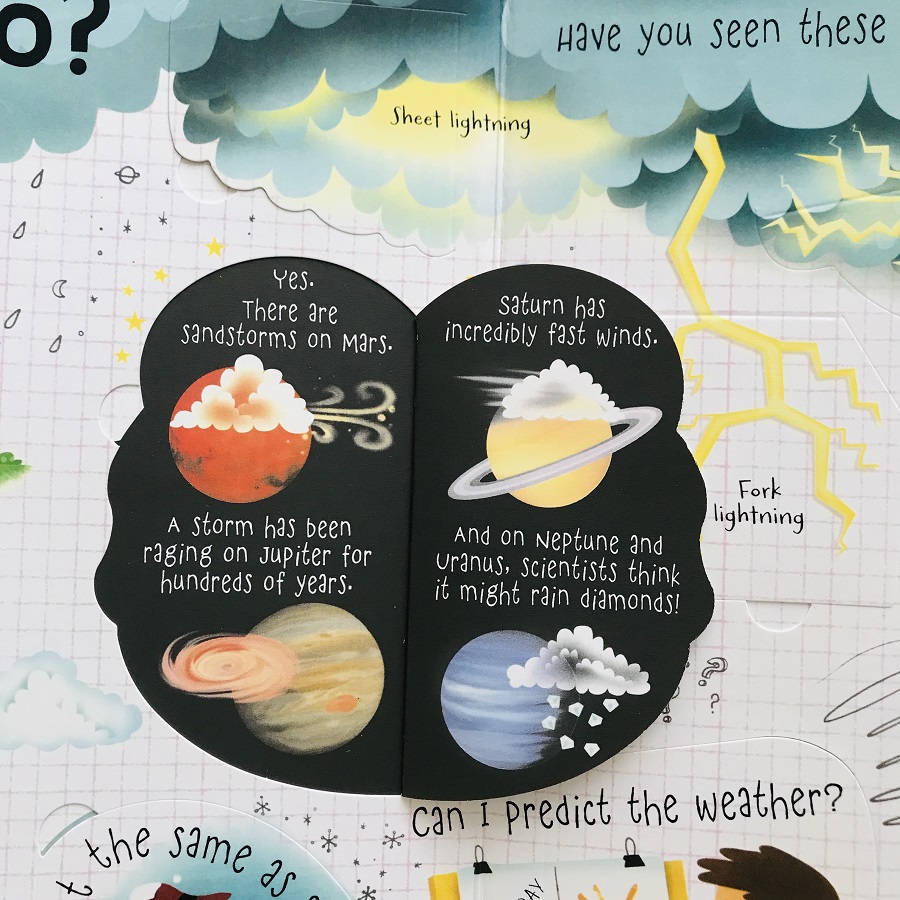 o?
Have you seen these
Sheet lightning
Yes.
There are
sandstorms on Mars.
A storm has been
raging on Jupiter for
hundreds of years.
Saturn has
incredibly fast winds.
And on Neptune and
Uranus, scientists think
it might rain diamonds!
Fork
lightning
?
?
Can I predict the weather?
t the same as
AY